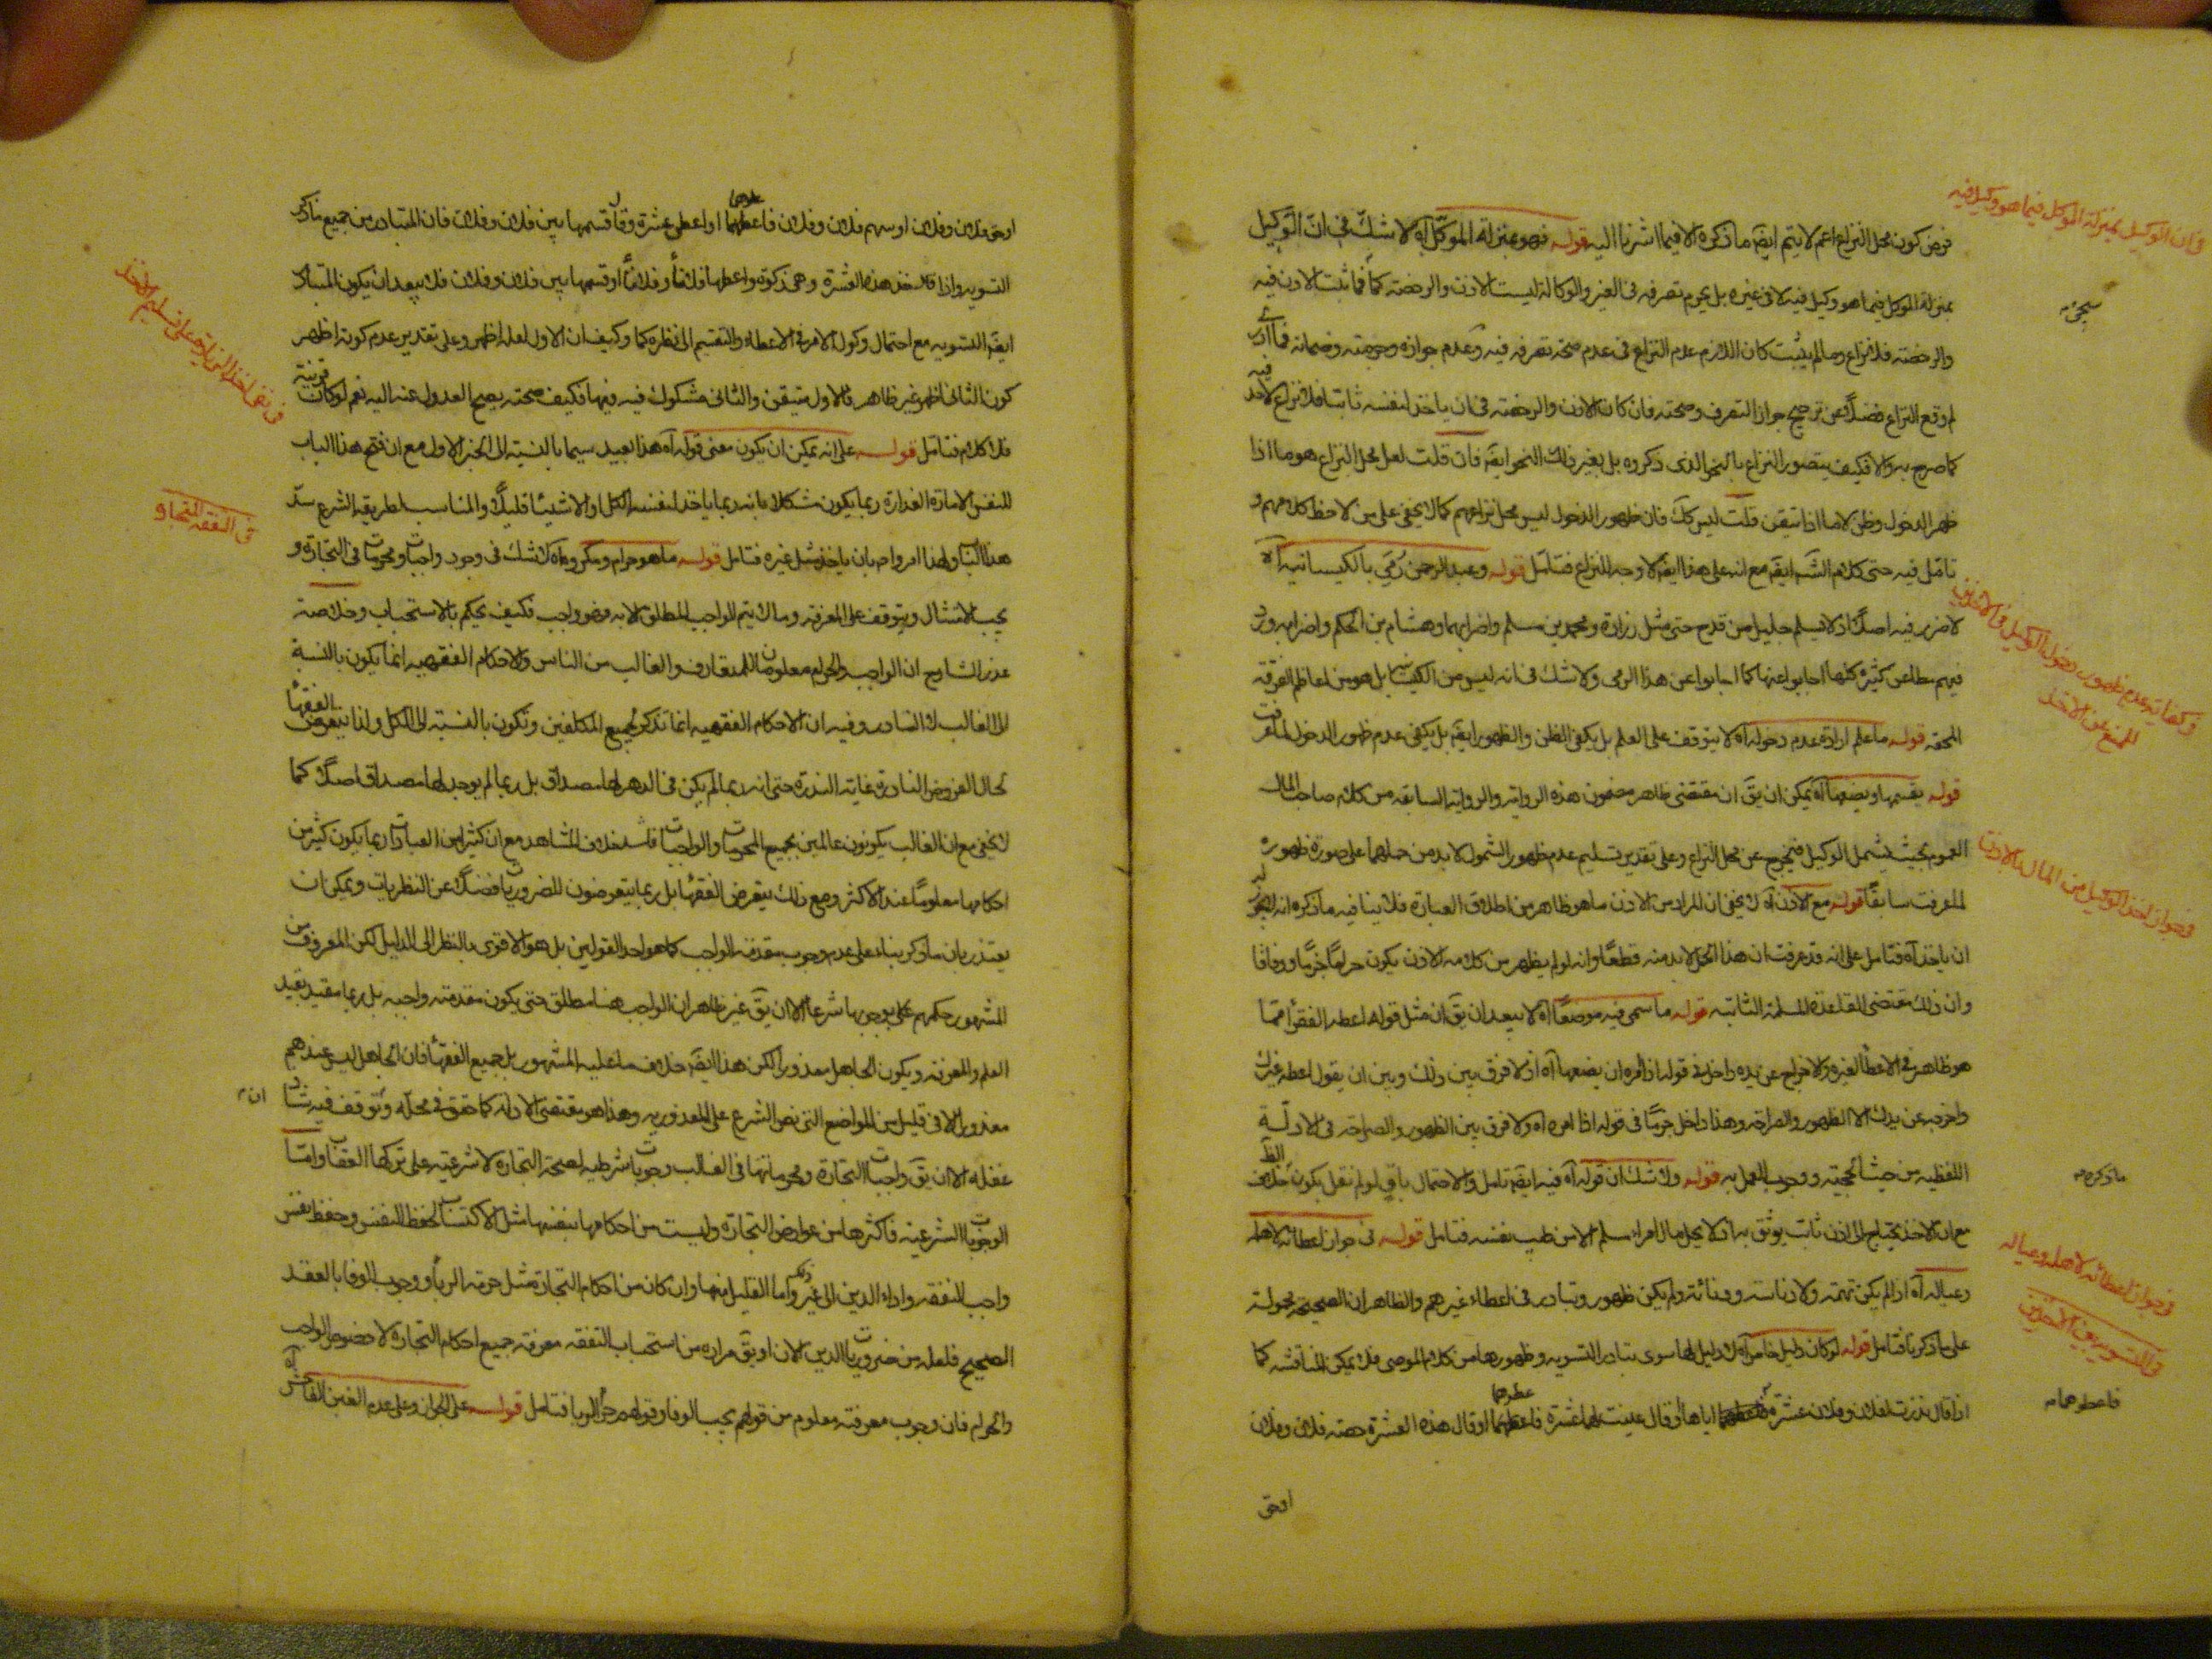 فرض كون محل النزاع اعم لا يتم ايضَ ما ذكره الا فيما اشرنا اليه قوله فهو بمنزلة الموكّل آه لا شكّ فى انّ الوكيل
بمنزلة الموكل فيما هو وكيل فيه لا فى غيره بل يحرم تصرفه فى الغير والوكالة ليست الاذن والرخصة كما فما ثبت الاذن فيه
والرخصة فلا نزاع وما لم يثبت كان اللازم عدم النزاع فى عدم صحة تصرفه فيه وعدم جوازه وحرمته وضمانه فما ادرى
لم وقع النزاع فضلاً عن ترجيح جواز التصرف وصحته فان كان الاذن والرخصة فى ان ياخذ لنفسه ثابتا فلا نزاع لاحد فيه
كما صرح به والا فكيف يتصور النزاع بالنحو الذى ذكروه بل بغير ذلك النحو ايضَ فان قلت لعل محل النزاع هو ما اذا
ظهر الدخول وظن لا ما اذا تيقن قلت ليس كك فان ظهور الدخول ليس محل نزاعهم كما لا يخفى على من لاحظ كلامهم و
تامّل فيه حتى كلام الشَه ايضَ مع انه على هذا ايضَ لا وجه للنزاع فتامّل قوله وعبد الرحمن رُمى بالكيسانية آه
لا ضرر فيه اصلاً اذ لا يسلم جليل من قدح حتى مثل زرارة ومحمد بن مسلم واضرابهما وهشام بن الحكم واضرابه ورد
فيهم مطاعن كثيرة كلها اجابوا عنها كما اجابوا عن هذا الرمى ولا شك فى انه ليس من الكيسا نية بل هو من اعاظم الفرقة
المحقه قوله ما علم ارادة عدم دخوله آه لا يتوقف على العلم بل يكفى الظن والظهور ايضَ بل يكفى عدم ظهور الدخول لما عرفت
قوله يقسمها ويضعها آه يمكن ان يقَ ان مقتضى ظاهر مضمون هذه الرواية والرواية السابقه من كلام صاحب المال
العموم بحيث يشمل الوكيل فيخرج عن محل النزاع وعلى تقدير تسليم عدم ظهور الشمول لا بد من حملهما على صورة ظهوره
لما عرفت سابقاً قوله مع الاذن آه لا يخفى ان المراد من الاذن ما هو ظاهر من اطلاق العبارة فلا ينافيه ما ذكره انه ليس
ان ياخذ آه فتامل على انه قد عرفت ان هذا الحمل لا بد منه قطعاً وانه لو لم يظهر من كلامه الاذن يكون حراماً جزماً ووفاقا
وان ذلك مقتضى القاعدة المسلمة الثابتة قوله ما سمى فيه موضعاً آه لا يبعد ان يقَ ان مثل قوله اعطه الفقرأ مما
هو ظاهر فى الاعطأ لغيره والاخراج عن يده داخل فى قوله اذا امره ان يضعها آه اذ لا فرق بين ذلك وبين ان يقول اعطه غيرك
واخرجه عن يدك الا الظهور والصراحة وهذا داخل جزماً فى قوله اذا امره آه ولا فرق بين الظهور والصراحة فى الادلّة
اللفظيه من حيث الحجيّة ووجوب العمل به قوله ولا شك ان قوله آه فيه ايضَ تامل والاحتمال باق لو لم نقل بكون خلاف الظَ
مع ان الاخذ يحتاج الى اذن ثابت يوثق به اذ لا يحل مال امرء مسلم الا من طيب نفسه فتامل قوله فى جواز اعطائه لاهله
وعياله آه اذا لم يكن تهمة ولا دناسته ودنائة ولم يكن ظهور وتبادر فى اعطاء غيرهم والظاهر ان الصحيحة محمولة
على ما ذكرنا فتامل قوله لو كان دليل خاص آه لا دليل لها سوى تبادر التسوية وظهورها من كلام الموصى فلا يمكن المناقشه كما
اذا قال نذرت لفلان وفلان عشرة اياها او قال عينت لهما عشرة فاعطهما او قال هذه العشرة حصة فلان وفلان
او حق
فى ان الوكيل بمنزلة الموكل فيما هو وكيل فيه
فى كفاية عدم ظهور دخول الوكيل فى الاخذين
للمنع من الاخذ
فى جواز اخذ الوكيل من المال بالاذن
ما ذكره
فى جواز اعطائه لاهله وعياله
فى التسوية بين الاخذين
فاعطوهما
او حق فلان وفلان او سهم فلان وفلان فاعطهما او اعطى عشرة وقال قسمها بين فلان وفلان فان المتبادر من جميع ما ذكر
التسوية واذا قال خذ هذه العشرة وهى زكوة واعطها فلاناً وفلاناً او قسمها بين فلان وفلان فلا يبعد ان يكون المتبادر
ايضَ التسويه مع احتمال وكول الامر فى الاعطاء والتقسيم الى نظره كما وكيف ان الاول لعله اظهر وعلى تقدير عدم كونه اظهر
كون الثانى اظهر غير ظاهر فالاول متيقن والثانى مشكوك فيه فيها فكيف صحته يصح العدول عنه اليه نعم لو كان قرينة
فلا كلام فتامل قوله على انه يمكن ان يكون معنى قوله آه هذا بعيد سيما بالنسبة الى الخبر الاول مع ان فتح هذا الباب
للنفس الامارة الغدارة ربما يكون مشكلا فانه ربما ياخذ لنفسه الكل او الا شيئا قليلاً والمناسب لطريقه الشرع سدّ
هذا الباب ولهذا امروا بان ياخذ مثل غيره فتامل قوله ما هو حرام ومكروه آه لا شك فى وجود واجبات ومحرمات فى التجارة و
يجب الامتثال ويتوقف على المعرفة وما لا يتم الواجب المطلق الا به فهو واجب فكيف يحكم بالاستحباب وخلاصة
عذر الشارح ان الواجب والحرام معلومان للمتعارف والغالب من الناس والاحكام الفقهيه انما يكون بالنسبة
الى الغالب لا النادر وفيه ان الاحكام الفقهيه انما تذكر لجميع المكلفين وتكون بالنسبة الى الكل ولذا يتعرض الفقهأ
لحال الفروض النادرة غاية الندرة حتى انه ربما لم يكن فى الدهر لها مصداق بل ربما لم يوجد لها مصداق اصلاً كما
لا يخفى مع ان الغالب يكونون عالمين بجميع المحرمات والواجبات فاسد خلاف المشاهد مع ان كثيرا من العبادات ربما يكون كثير من
احكامها معلوماً عند الاكثر ومع ذلك يتعرض الفقهأ بل ربما يتعرضون للضروريات فضلاً عن النظريات ويمكن ان
يعتذر بان ما ذكر بناء على عدم وجوب مقدمة الواجب كما هو احد القولين بل هو الاقوى بالنظر الى الدليل لكن المعروف من
المشهور حكمهم على وجوبها شرعاً الا ان يقَ غير ظاهر ان الواجب هنا مطلق حتى يكون مقدمته واجبه بل ربما مقيد بقيد
العلم والمعرفة ويكون الجاهل معذورا لكن هذا ايضَ خلاف ما عليه المشهور بل جميع الفقهأ فان الجاهل ليس عندهم
معذور الا فى قليل من المواضع التى نص الشرع على المعذوريه وهذا هو مقتضى الادلة كما حقق فى محله وتوقف فيه شاذ
غفلة الا ان يقَ واجبات التجارة ومحرماتها فى الغالب وجوبات شرطيه لصحة التجارة لا شرعية على تركها العقاب واما
الوجوبات الشرعية فاكثرها من عوارض التجارة وليست من احكامها بنفسها مثل الاكتساب لحفظ النفس وحفظ نفس
واجب النفقه واداء الدين الى غير ذلك واما القليل منها وان كان من احكام التجارة مثل حرمة الربأ ووجوب الوفا بالعقد
الصحيح فلعله من ضروريات الدين الان او يقَ مراده من استحباب التفقه معرفة جميع احكام التجارة لا خصوص الواجب
والحرام فان وجوب معرفته معلوم من قولهم يجب الوفا وقولهم حرم الربا فتامل قوله على الجواز وعلى عدم الغبن الفاحش آه
فى التفقه للتجارة